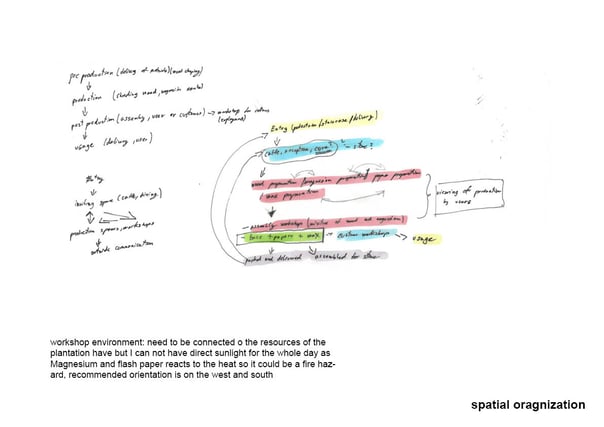 pre production (delivery of materials)(wood chopping)
production (
post production (assembly, user or customer) → workshops for
(explosions)
usage (delivery, user)
Entry (pedestrian/storehouse/delivery)
caffe, reception,
wood preparation (magnesium preparation) paper preparation
& wax preparation
viewing of production
by users
- assembly workshop (mixture of wood and magnesium)
+ papers + wax → custom workshops → usage
packed and delivered assembled for store
Entry
inviting space (caffe, dining)
production spaces, workshops
outside communication
workshop environment: need to be connected o the resources of the
plantation have but I can not have direct sunlight for the whole day as
Magnesium and flash paper reacts to the heat so it could be a fire haz-
ard, recommended orientation is on the west and south
spatial oragnization